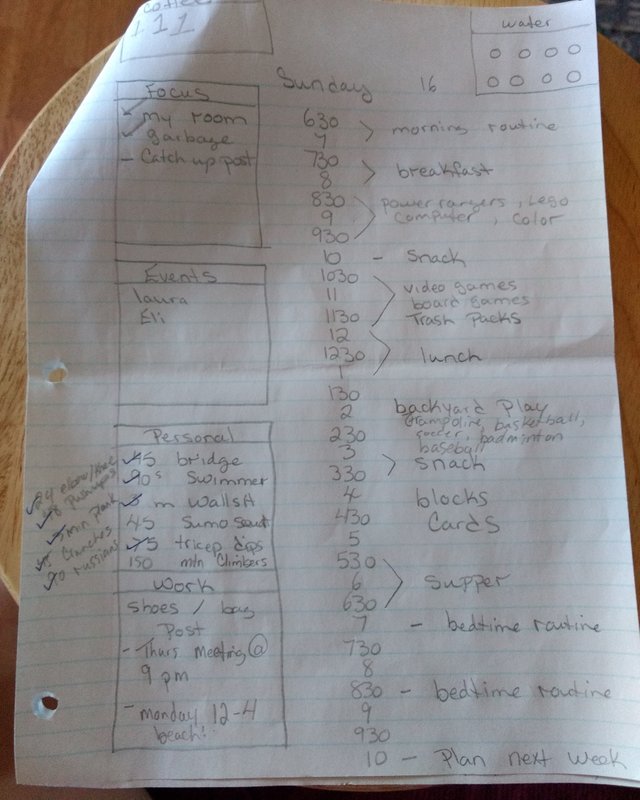 coffee
111
water
Sunday 16
Focus
- my room
garbage
- Catch up post
Events
laura
Eli
Personal
45 bridge
90s Swimmer
3 m Wallsit
45 Sumo squat
75 tricep dips
150 mtn Climbers
pushups
5 min plank
Crunches
russians
Work
shoes / bag
Post
- Thurs Meeting @
9 pm
- monday 12-4
beach!
630
7 > morning routine
730
8 > breakfast
830 power rangers, Lego
9 Computer, Color
930
10 - Snack
1030 video games
11 board games
1130 Trash Packs
12
1230 lunch
1
130
2 backyard Play
trampoline, basketball,
230 soccer, badminton
3 baseball
330 > snack
4 blocks
430 Cards
5
530
6 > supper
630
7 - bedtime routine
730
8
830 - bedtime routine
9
930
10 - Plan next week